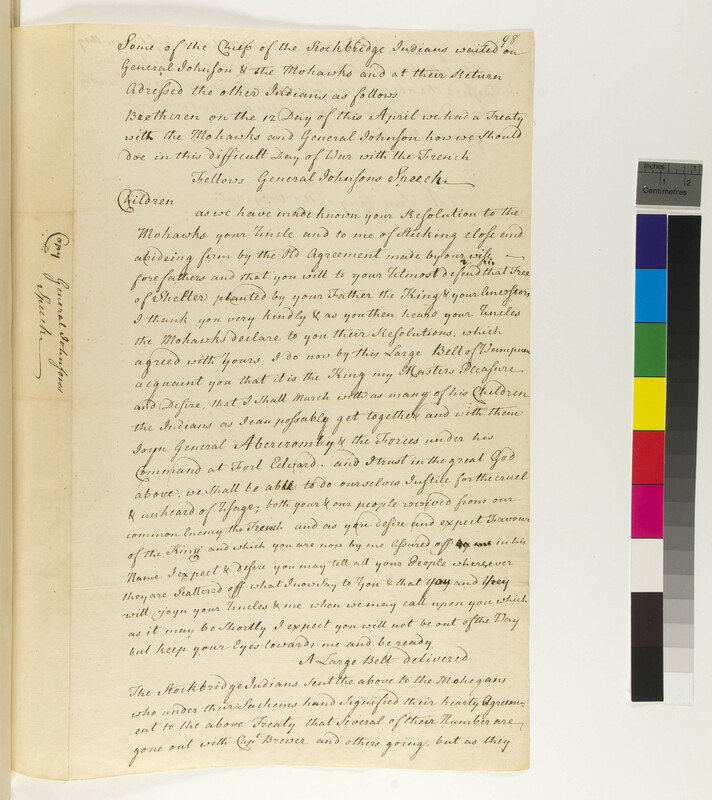 98
Some of the Chiefs of the Stockbridge Indians waited on
General Johnson & the Mohawks and at their Return
Adressed the other Indians as follows
Bretheren on the 12 Day of this April we had a Treaty
with the Mohawks and General Johnson how we Should
doe in this difficult Day of War with the French
Follows General Johnsons Speech
Children
as we have made known your Resolution to the
Mohawks your Uncle and to me of Sticking close and
abideing firm by the Old Agreement made by our wise
forefathers and that you will to your Utmost defend that Tree
of Shelter planted by your Father the King & your Ancestors
I thank you very kindly & as you then heard your Uncles
the Mohawks declare to you their Resolutions, which
agreed with Yours, I do now by this Large Belt of Wampum
acquaint you that it is the King my Masters Pleasure
and Desire, that I Shall March with as many of his Children
the Indians as I can possably get together and with them
Joyn General Abercromby & the Forces under his
Command at Fort Edward. and I trust in the great God
above, we shall be able to do ourselves Justice for the cruel
& unheard of Usage; both your & our people received from our
common Enemy the French and as you desire and expect Favour
of the King and which you are now by me assured off in his
Name I expect & desire you may tell all your People wheresever
they are Scattered off what I now Say to You & that you and they
will joyn your Uncles & me when we may call upon you which
as it may be Shortly I expect you will not be out of the Way
but keep your Eyes towards me and be ready
A Large Belt delivered
The Stockbridge Indians Sent the above to the Mohegans
who under their Sachems hand Signified their hearty Agreem-
ent to the above Treaty that Several of their Number are
gone out with Capt Brewer and others going, but as they
Copy General Johnsons
Speech
Inches
1
2
Centimetres